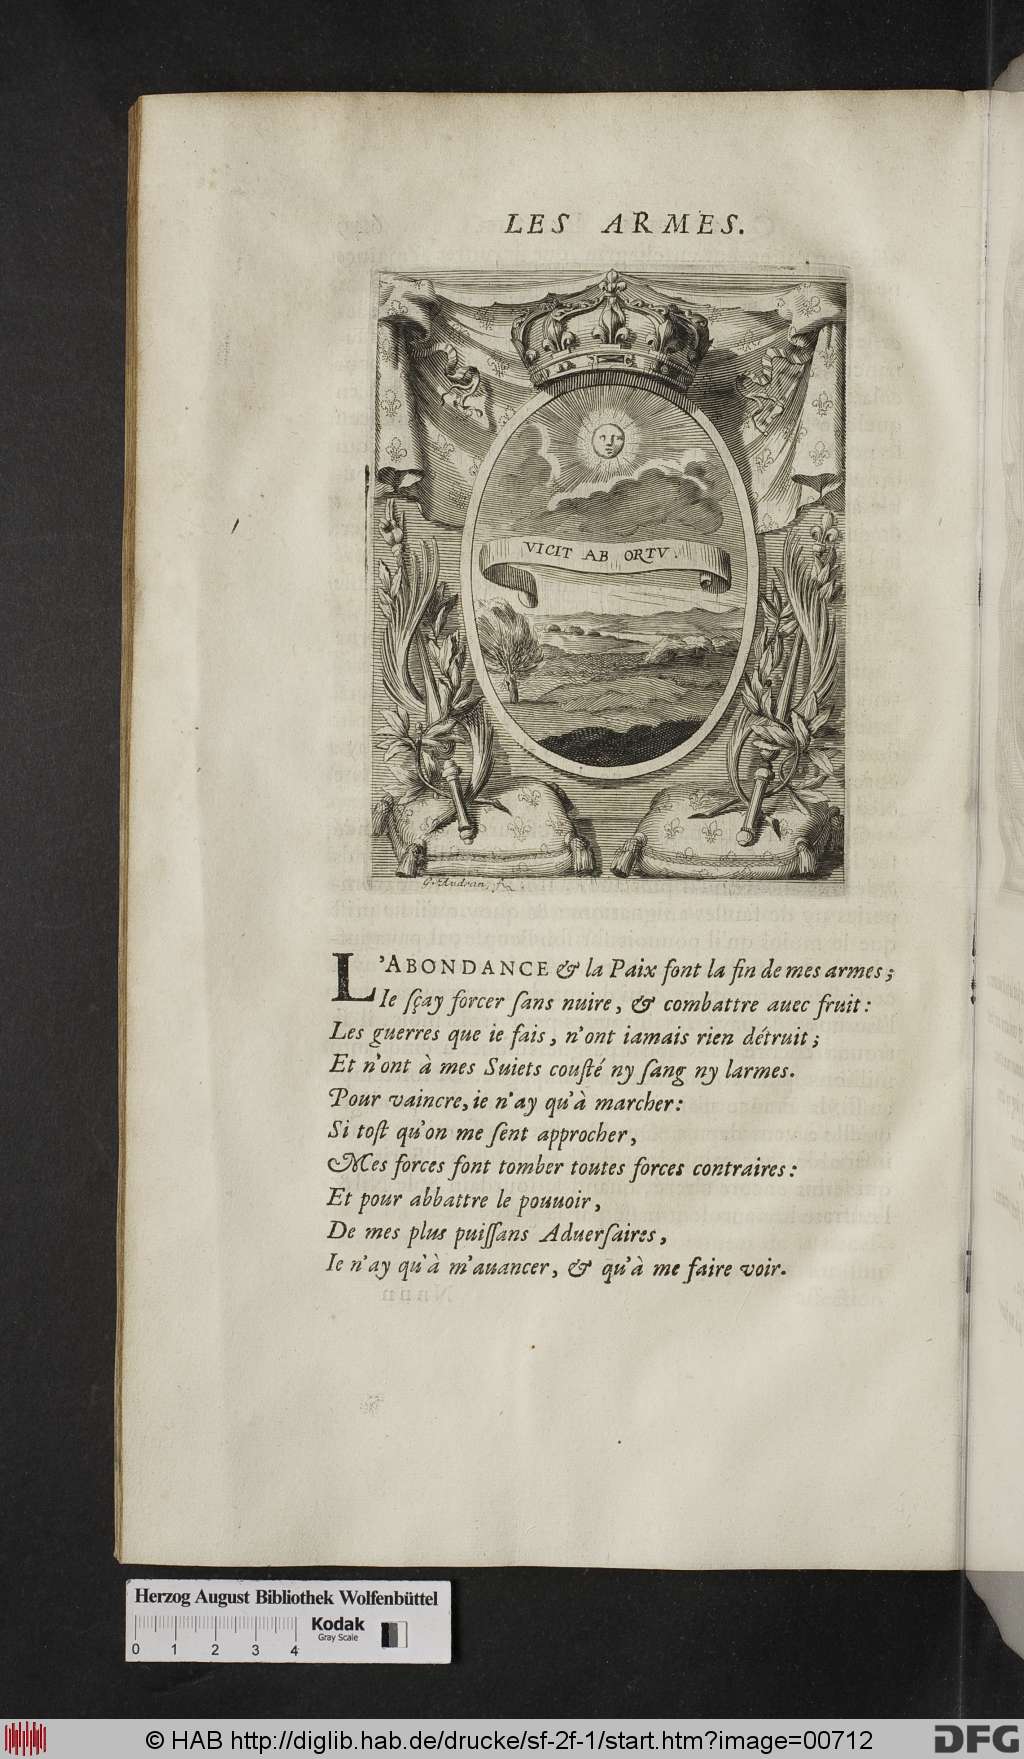 LES ARMES.
VICIT AB ORTV.
G. Audran, fe
L'ABONDANCE & la Paix ſont la fin de mes armes;
Ie ſçay forcer ſans nuire, & combattre auec fruit:
Les guerres que ie fais, n'ont iamais rien détruit;
Et n'ont à mes Suiets couſté ny ſang ny larmes.
Pour vaincre, ie n'ay qu'à marcher:
Si toſt qu'on me ſent approcher,
Mes forces font tomber toutes forces contraires:
Et pour abbattre le pouuoir,
De mes plus puiſſans Aduerſaires,
Ie n'ay qu'à m'auancer, & qu'à me faire voir.
Herzog August Bibliothek Wolfenbüttel
Kodak
Gray Scale
0 1 2 3 4
© HAB http://diglib.hab.de/drucke/sf-2f-1/start.htm?image=00712
DFG